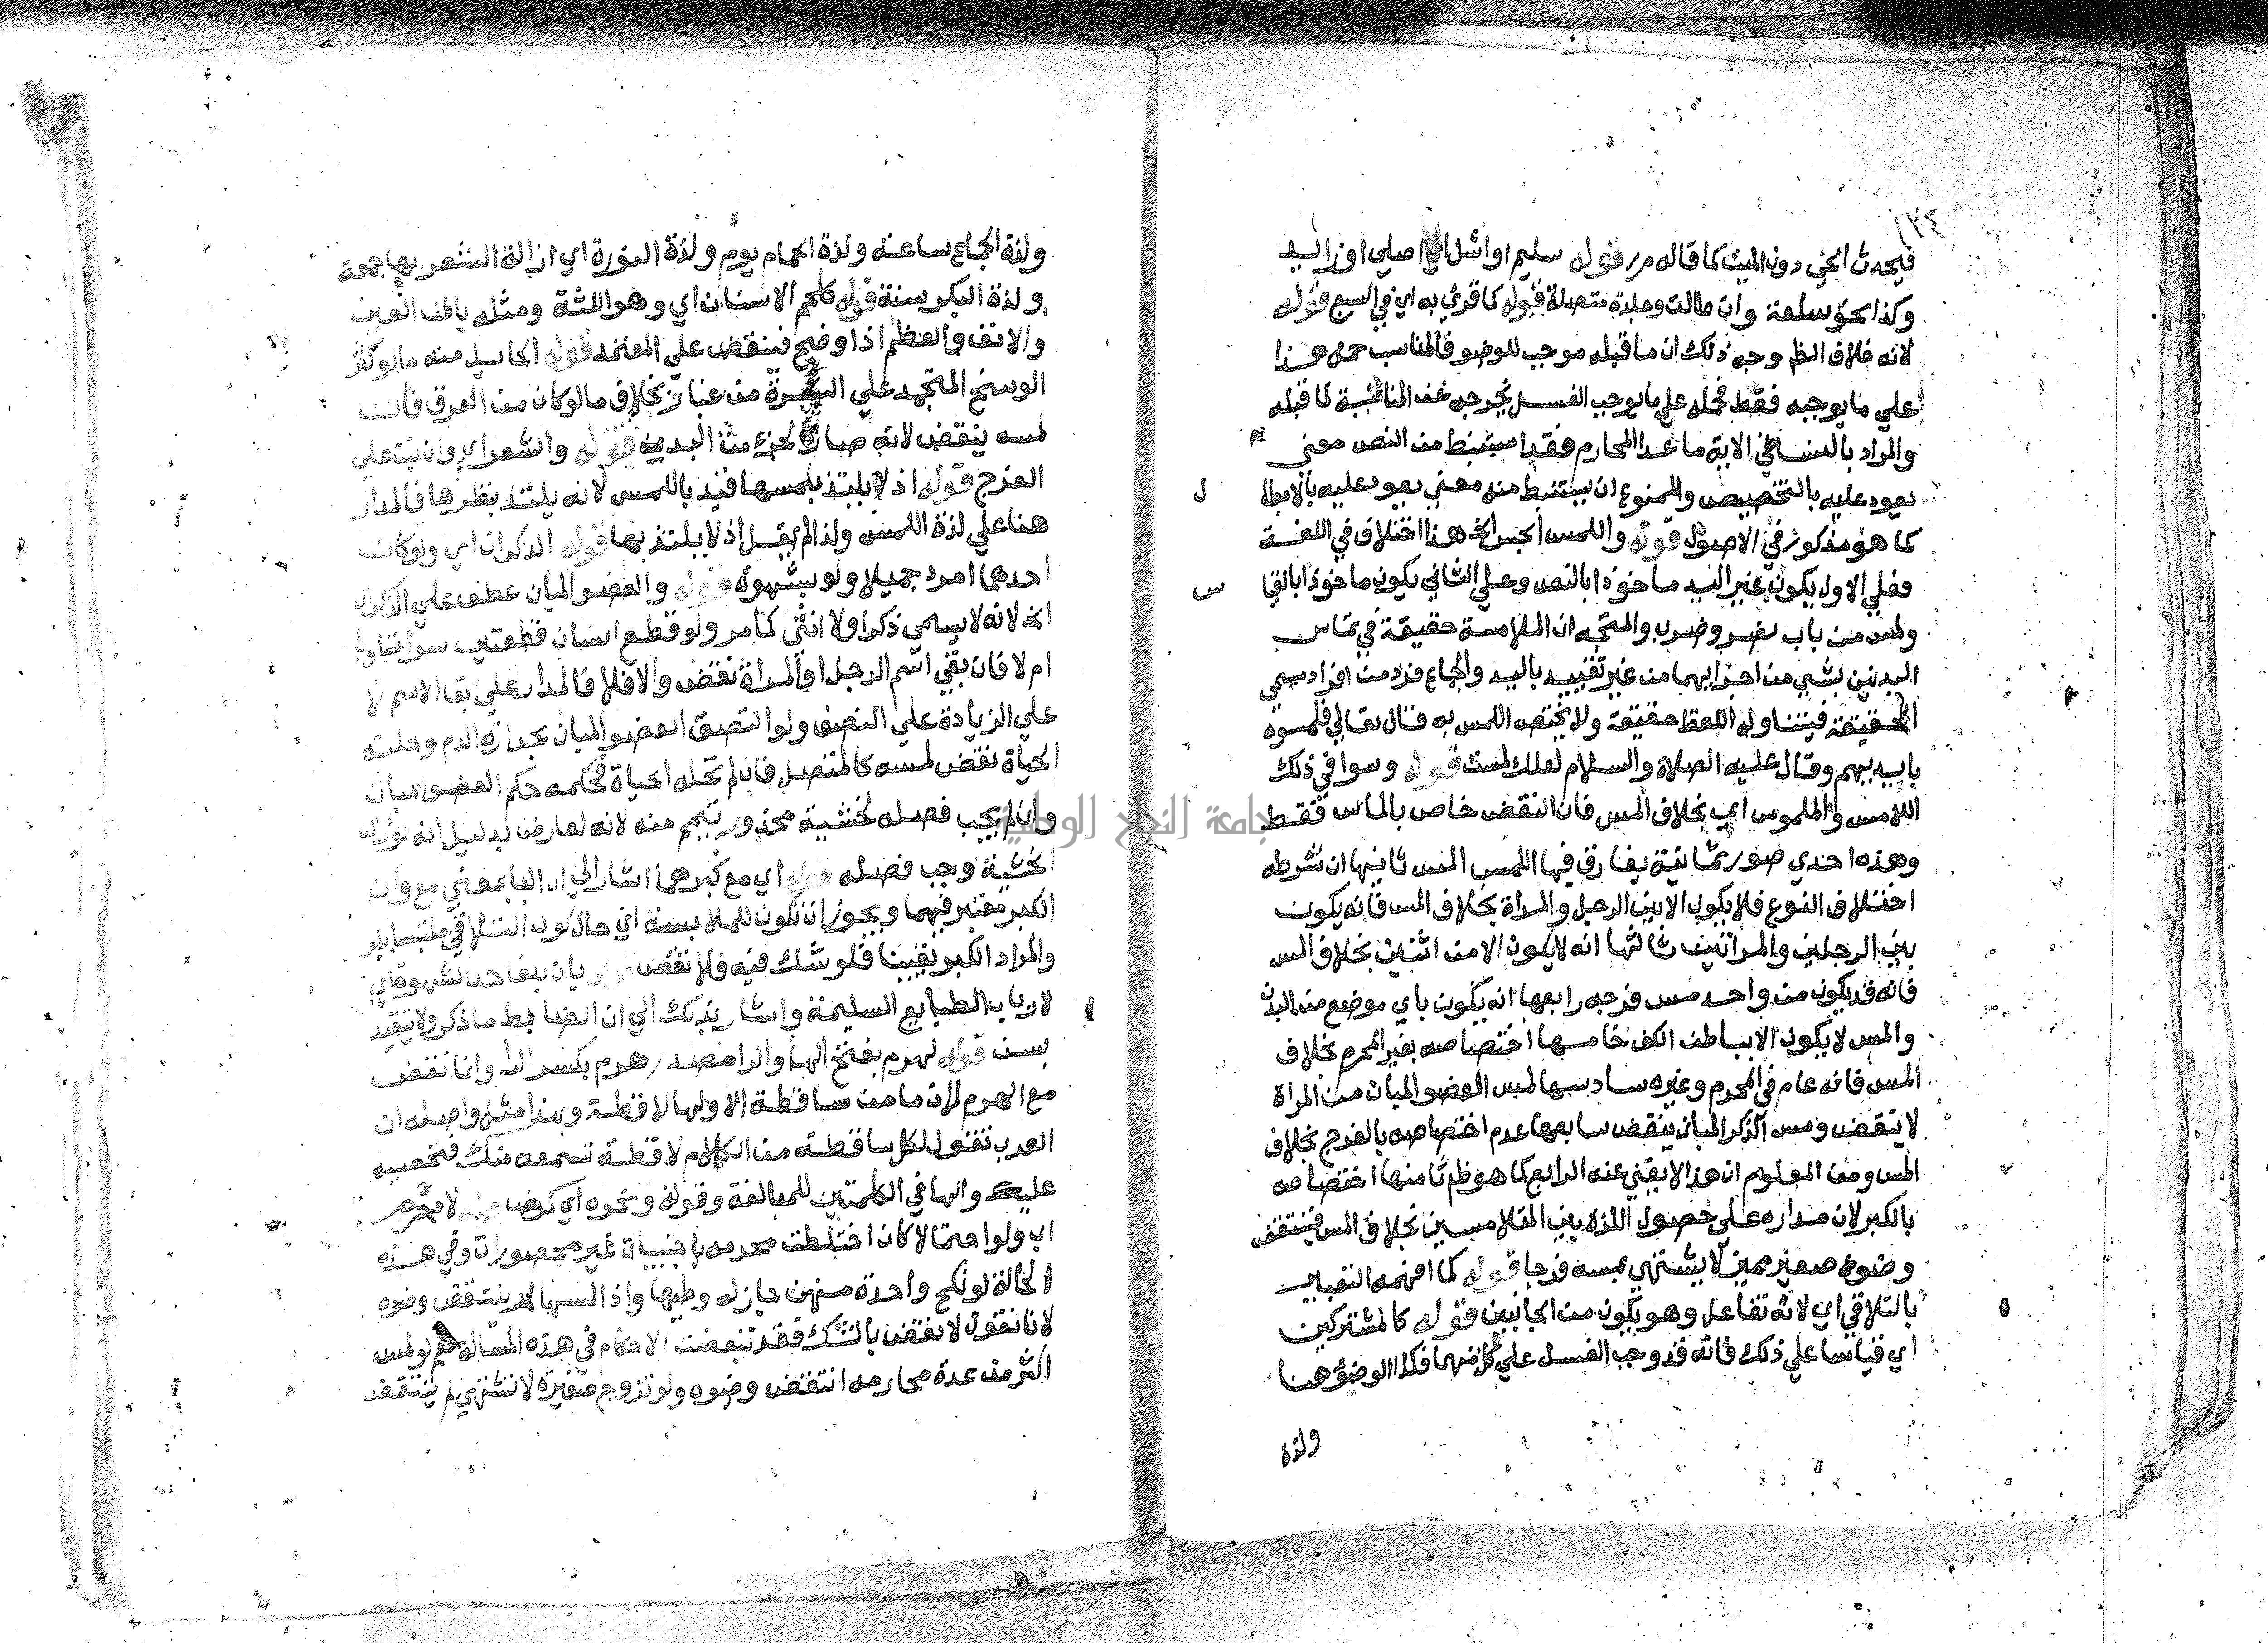 ١٢٤
فيحدث الحي دون الميت كما قاله م ر قوله سليم او اشل اي اصلي او زايد
وكذا نحو سلعة وان طالت وجلدة متصلة قوله كما قري به اي في السبع قوله
لانه خلاف الظ وجه ذلك ان ما قبله موجب للوضو فالمناسب حمل هذا
علي ما يوجبه فقط فحمله علي ما يوجب الغسل يخرجه عن المناسبة لما قبله
والمراد بالنسا في الاية ما عدا المحارم فقد استنبط من النص معني
يعود عليه بالتخصيص والممنوع ان يستنبط منه معني يعود عليه بالابطا ل
كما هو مذكور في الاصول قوله واللمس الجس الخ هذا اختلاف في اللغة
فعلي الاول يكون غير اليد ماخوذا بالنص وعلي الثاني يكون ماخوذا بالقيا س
ولمس من باب نصر وضرب والمتجه ان الملامسة حقيقة في تماس
البدنين بشي من اجزايهما من غير تقييد باليد والجماع فرد من افراد مسمي
الحقيقة فيتناوله اللفظ حقيقة ولا يختص اللمس به قال تعالي فلمسوه
بايديهم وقال عليه الصلاة والسلام لعلك لمست قوله وسوا في ذلك
اللامس والملموس اي بخلاف المس فان النقض خاص بالماس فقط
وهذه احدي صور ثمانية يفارق فيها اللمس المس ثانيها ان شرطه
اختلاف النوع فلا يكون الا بين الرجل والمراة بخلاف المس فانه يكون
بين الرجلين والمراتين ثالثها انه لا يكون الا من اثنين بخلاف المس
فانه قد يكون من واحد مس فرجه رابعها انه يكون باي موضع من البدن
والمس لا يكون الا بباطن الكف خامسها اختصاصه بغير المحرم بخلاف
المس فانه عام في المحرم وغيره سادسها لمس العضو المبان من المراة
لا ينقض ومس الذكر المبان ينقض سابعها عدم اختصاصه بالفرج بخلاف
المس ومن المعلوم ان هذا لا يغني عنه الرابع كما هو ظم ثامنها اختصاصه
بالكبر لان مداره علي حصول اللذة بين المتلامسين بخلاف المس فينتقض
وضوء صغير مميز لا يشتهي بمسه فرجا قوله كما افهمه التعبير
بالتلاقي اي لانه تفاعل وهو يكون من الجانبين قوله كالمشتركين
اي قياسا علي ذلك فانه قد وجب الغسل علي كل منهما فكذا الوضوء هنا
ولذة
ولذة الجماع ساعة ولذة الحمام يوم ولذة النورة اي ازالة الشعر بها جمعة
ولذة البكر سنة قوله كلحم الاسنان اي وهو اللثة ومثله باطن العين
والانف والعظم اذا وضح فينقض علي المعتمد قوله الحايل منه ما لو كثر
الوسخ المتجمد علي البشرة من غبار بخلاف ما لو كان من العرق فان
لمسه ينقض لانه صار كالجزء من البدن قوله والشعر اي وان نبت علي
الفرج قوله اذ لا يلتذ بلمسها قيد باللمس لانه يلتذ بنظرها فالمدار
هنا علي لذة اللمس ولذا لم يقل اذ لا يلتذ بها قوله الذكران اي ولو كان
احدهما امرد جميلا ولو بشهوة قوله والعضو المبان عطف علي الذكران
الخ لانه لا يسمي ذكرا ولا انثي كما مر ولو قطع انسان قطعتين سوا تساويا
ام لا فان بقي اسم الرجل او المراة نقض والا فلا فالمدار علي بقا الاسم لا
علي الزيادة علي النصف ولو التصق العضو المبان بحرارة الدم وحلته
الحياة نقض لمسه كالمتصل فان لم تحله الحياة فحكمه حكم العضو المبان
وان لم يجب فصله لخشية محذور تيمم منه لانه لعارض بدليل انه لو زالت
الخشية وجب فصله قوله اي مع كبرهما اشار الي ان البا بمعني مع وان
الكبر معتبر فيهما ويجوز ان تكون للملابسة اي حال كون التلاقي ملتبسا بكبر
والمراد الكبر يقينا فلو شك فيه فلا نقض قوله بان بلغا حد الشهوة اي
لارباب الطبايع السليمة واشار بذلك الي ان الضابط ما ذكر ولا يتقيد
بسن قوله لهرم بفتح الها والرا مصدر هرم بكسر الرا وانما نقض
مع الهرم لان ما من ساقطة الا ولها لاقطة وهذا مثل واصله ان
العرب تقول لكل ساقطة من الكلام لاقطة تسمعه منك فتحصيه
عليك والها في الكلمتين للمبالغة وقوله ونحوه اي كمرض قوله لا محرم
اي ولو احتمالا كان اختلطت محرمه باجنبيات غير محصورات وفي هذه
الحالة لو نكح واحدة منهن جاز له وطيها واذا لمسها لم ينتقض وضوه
لانا نقول لا نقض بالشك فقد تبعضت الاحكام في هذه المسالة نعم لو لمس
اكثر من عدة محارمه انتقض وضوه ولو تزوج صغيرة لا تشتهي لم ينتقض
جامعة النجاح الوطنية